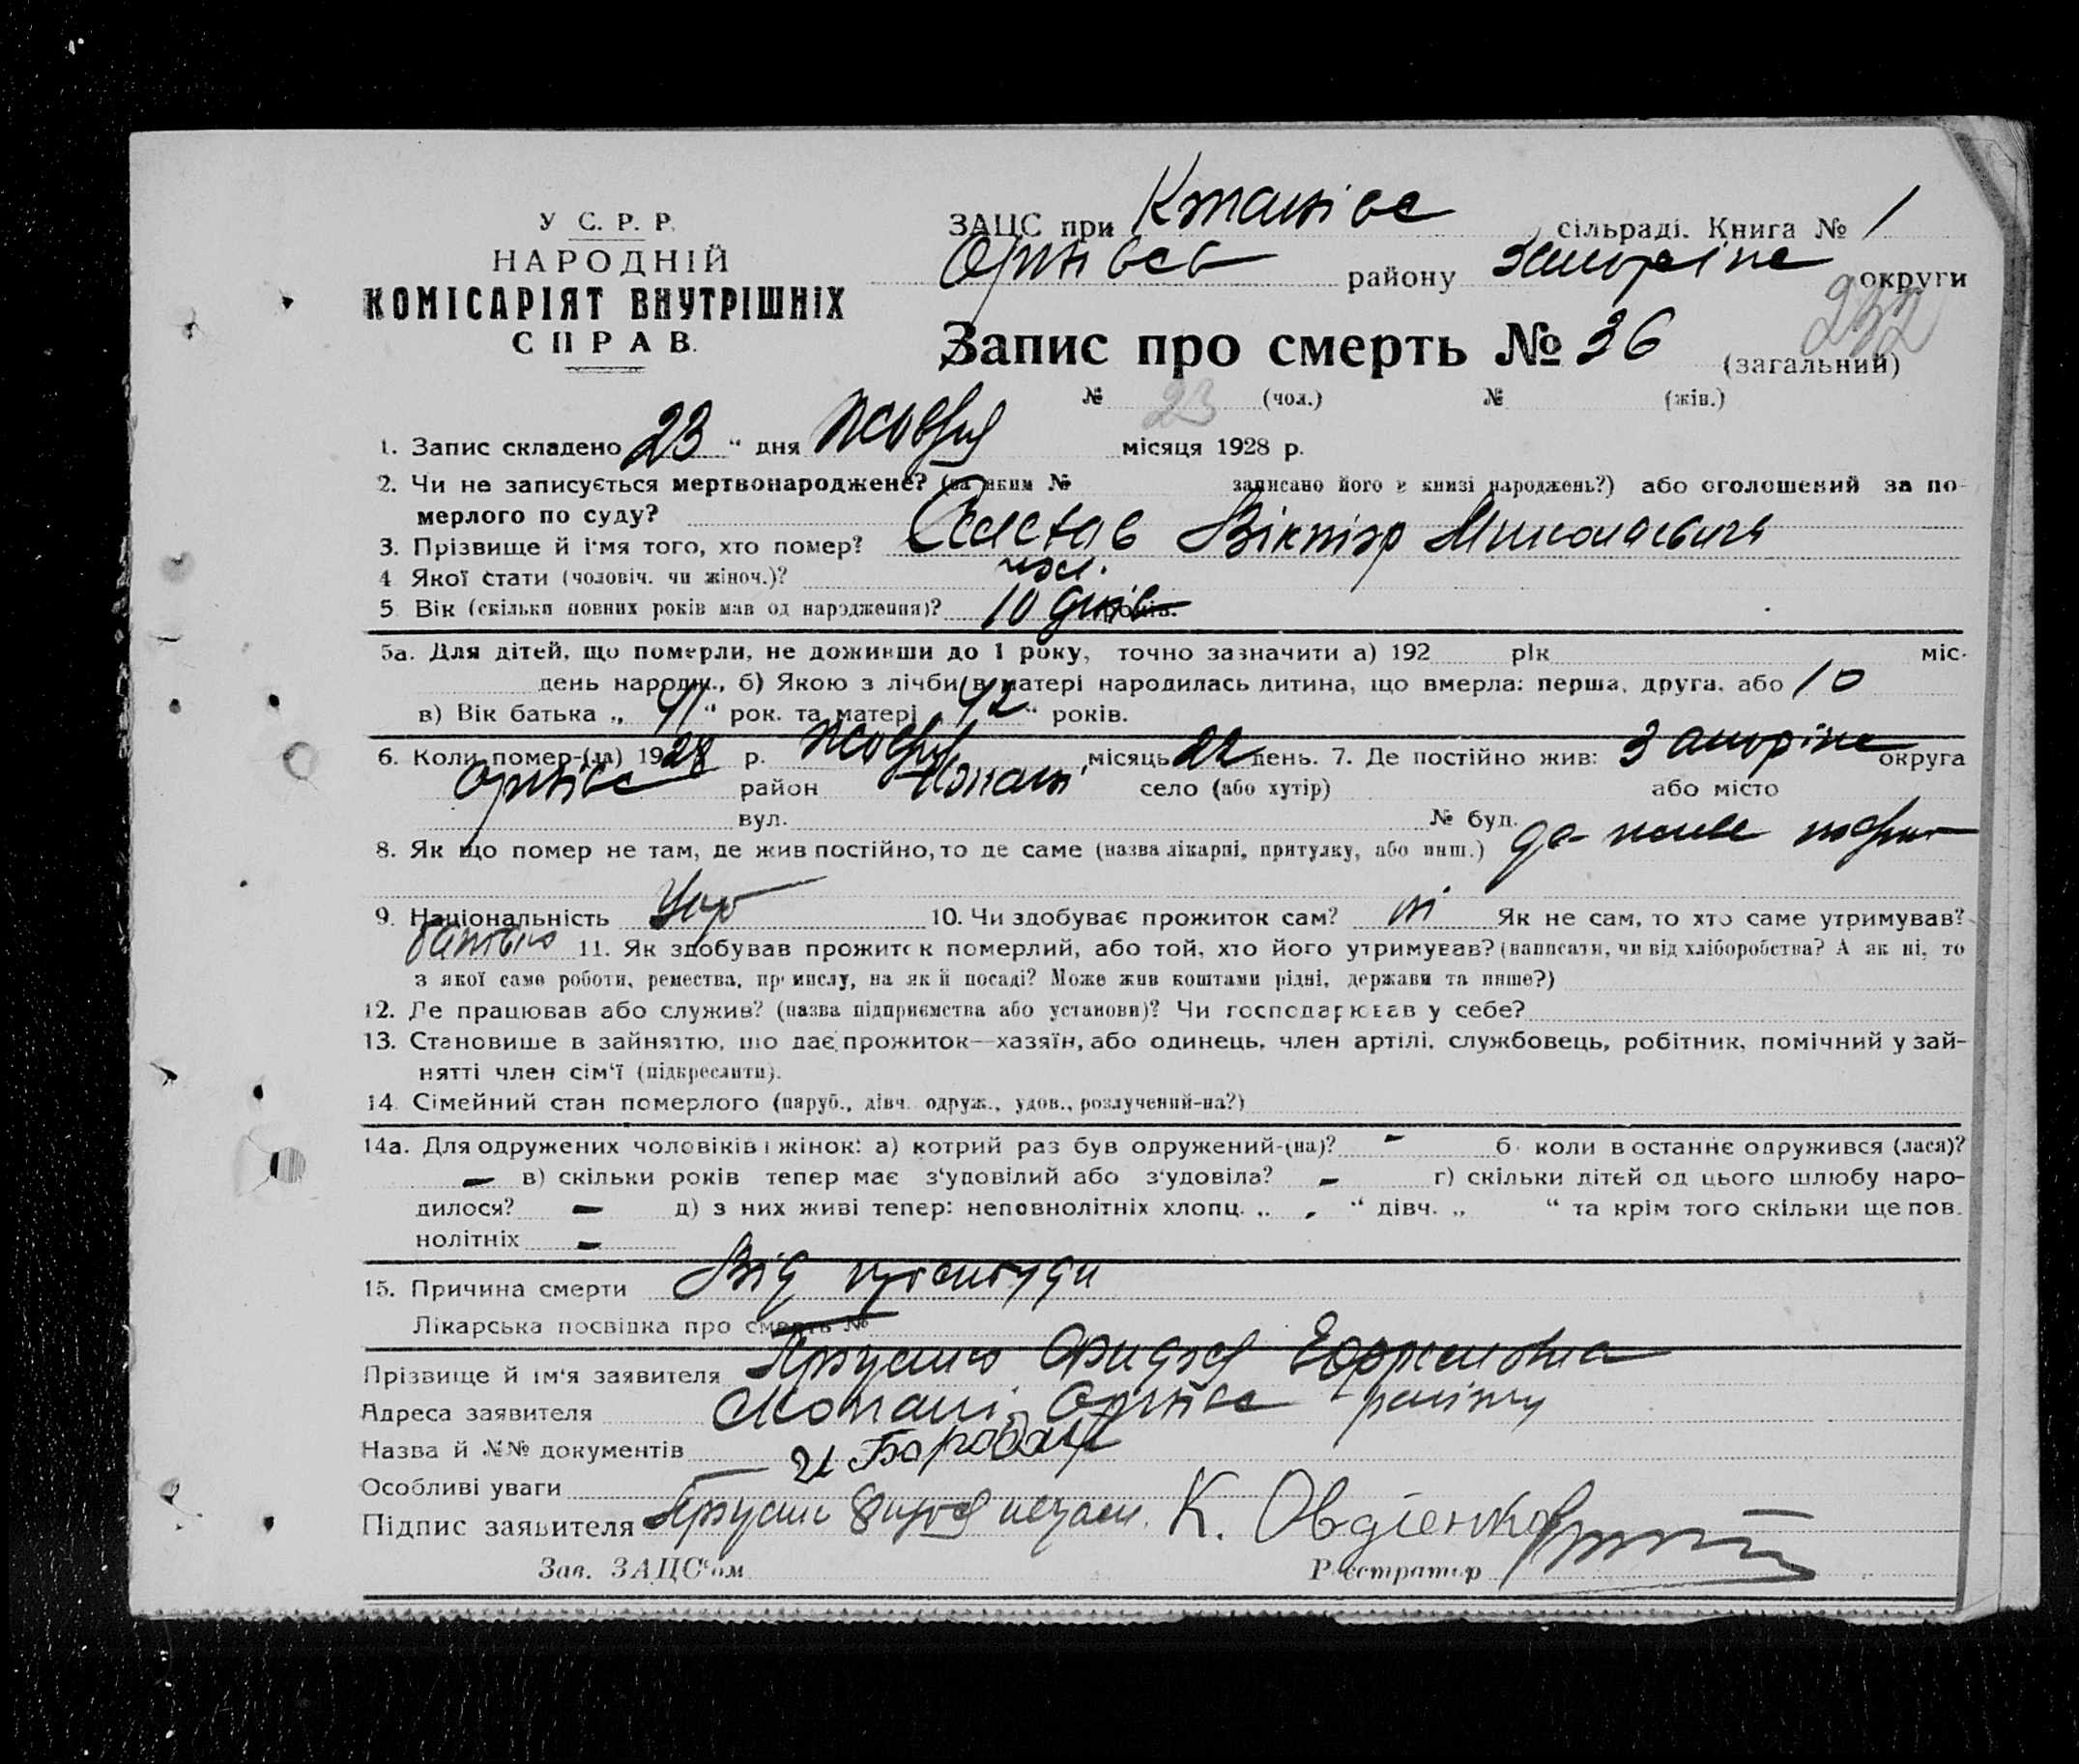 У С. Р. Р.
НАРОДНІЙ
КОМІСАРІЯТ ВНУТРІШНІХ
СПРАВ.
ЗАЦС при сільраді. Книга № 1
району округи
232
Запис про смерть № 36 (загальний)
№ 23 (чол.) № (жін.)
1. Запис складено 23 " дня Жовтня місяця 1928 р.
2. Чи не записується мертвонароджене? (за яким № записано його в книзі народжень?) або оголошений за по-
мерлого по суду?
3. Прізвище й ім'я того, хто помер? Віктор Миколаєвич
4 Якої статі (чоловіч. чи жіноч.)? чол.
5 Вік (скільки повних років мав од народження)? 10 днів років.
5а. Для дітей, що померли, не доживши до 1 року, точно зазначити а) 192 рік міс.
день народж., б) Якою з лічби в матері народилась дитина, що вмерла: перша, друга, або 10
в) Вік батька „ 41 " рок. та матері „ 42 " років.
6. Коли помер-(ла) 1928 р. Жовтня місяць 22 день. 7. Де постійно жив: округа
район село (або хутір) або місто
вул. № буд.
8. Як що помер не там, де жив постійно, то де саме (назва лікарні, притулку, або инш.)
9. Національність Укр 10. Чи здобуває прожиток сам? ні Як не сам, то хто саме утримував?
батько 11. Як здобував прожиток померлий, або той, хто його утримував? (написати, чи від хліборобства? А як ні, то
з якої саме роботи, ремества, промислу, на якій посаді? Може жив коштами рідні, держави та инше?)
12. Де працював або служив? (назва підприємства або установи)? Чи господарював у себе?
13. Становище в зайняттю, що дає прожиток—хазяїн, або одинець, член артілі, службовець, робітник, помічний у зай-
нятті член сім'ї (підкреслити).
14. Сімейний стан померлого (паруб., дівч. одруж., удов., розлучений-на?)
14а. Для одружених чоловіків і жінок: а) котрий раз був одружений-(на)? - б коли востаннє одружився (лася)?
- в) скільки років тепер має з'удовілий або з'удовіла? - г) скільки дітей од цього шлюбу наро-
дилося? - д) з них живі тепер: неповнолітніх хлопц. „ - " дівч. „ " та крім того скільки ще пов.
нолітніх -
15. Причина смерти Від простуди
Лікарська посвідка про смерть №
Прізвище й ім'я заявителя
Адреса заявителя
Назва й №№ документів
Особливі уваги
Підпис заявителя К. Овдієнко
Зав. ЗАЦС'ом Реєстратор